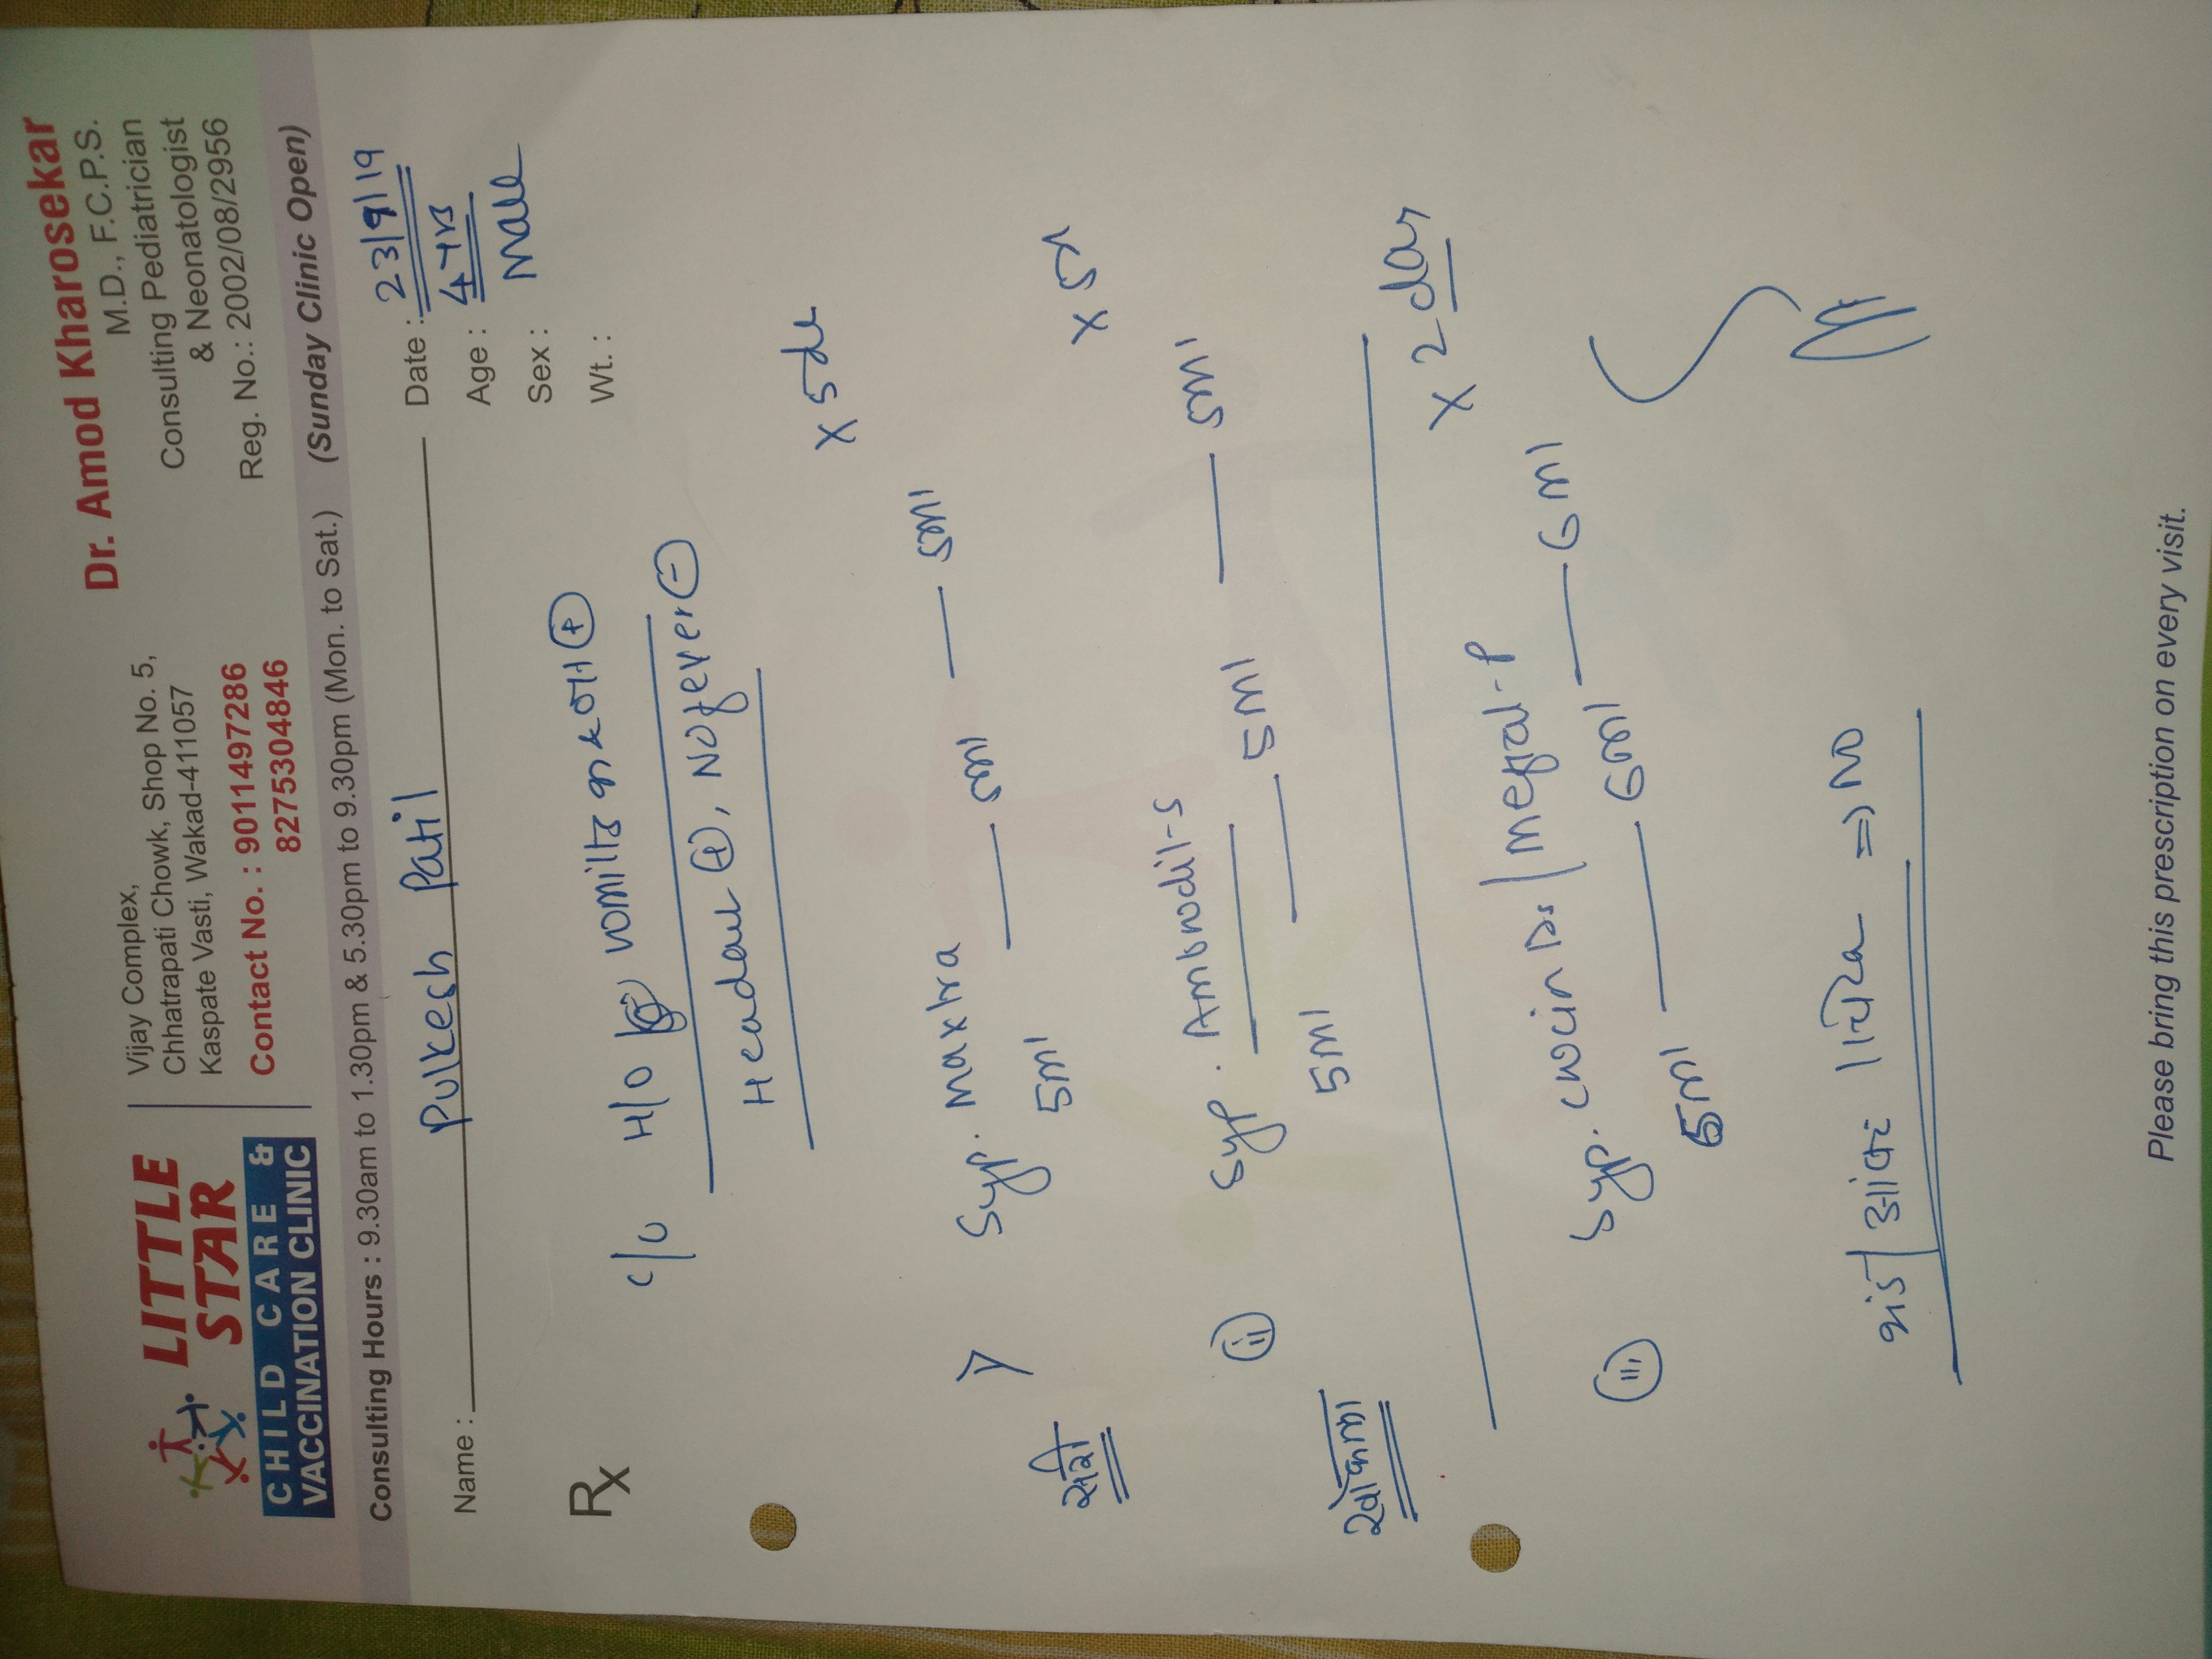 LITTLE
STAR
CHILD CARE &
VACCINATION CLINIC
Vijay Complex,
Chhatrapati Chowk, Shop No. 5,
Kaspate Vasti, Wakad-411057
Contact No. : 9011497286
8275304846
Dr. Amod Kharosekar
M.D., F.C.P.S.
Consulting Pediatrician
& Neonatologist
Reg. No.: 2002/08/2956
Consulting Hours : 9.30am to 1.30pm & 5.30pm to 9.30pm (Mon. to Sat.) (Sunday Clinic Open)
Name : Pulkesh Patil
Date : 23/9/19
Age : 4 yrs
Sex : Male
Wt. :
Rx
c/o H/O +
+, No fever -
x 5
Syp. Maxtra
5ml — 5ml — 5ml
सर्दी
x 5
ii Syp. Ambrodil-S
5ml — 5ml — 5ml
खोकला
x 2 day
iii Syp. crocin Ds / Meftal-P
6ml — 6ml
थंड / आंबट ⇒ NO
Please bring this prescription on every visit.